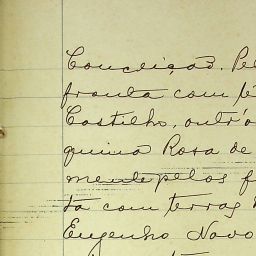 Conceição. Pe
fronta com t
Castilho, outr'o
quina Rosa de
mente pelos f
ta com terras
Eugenho Novo